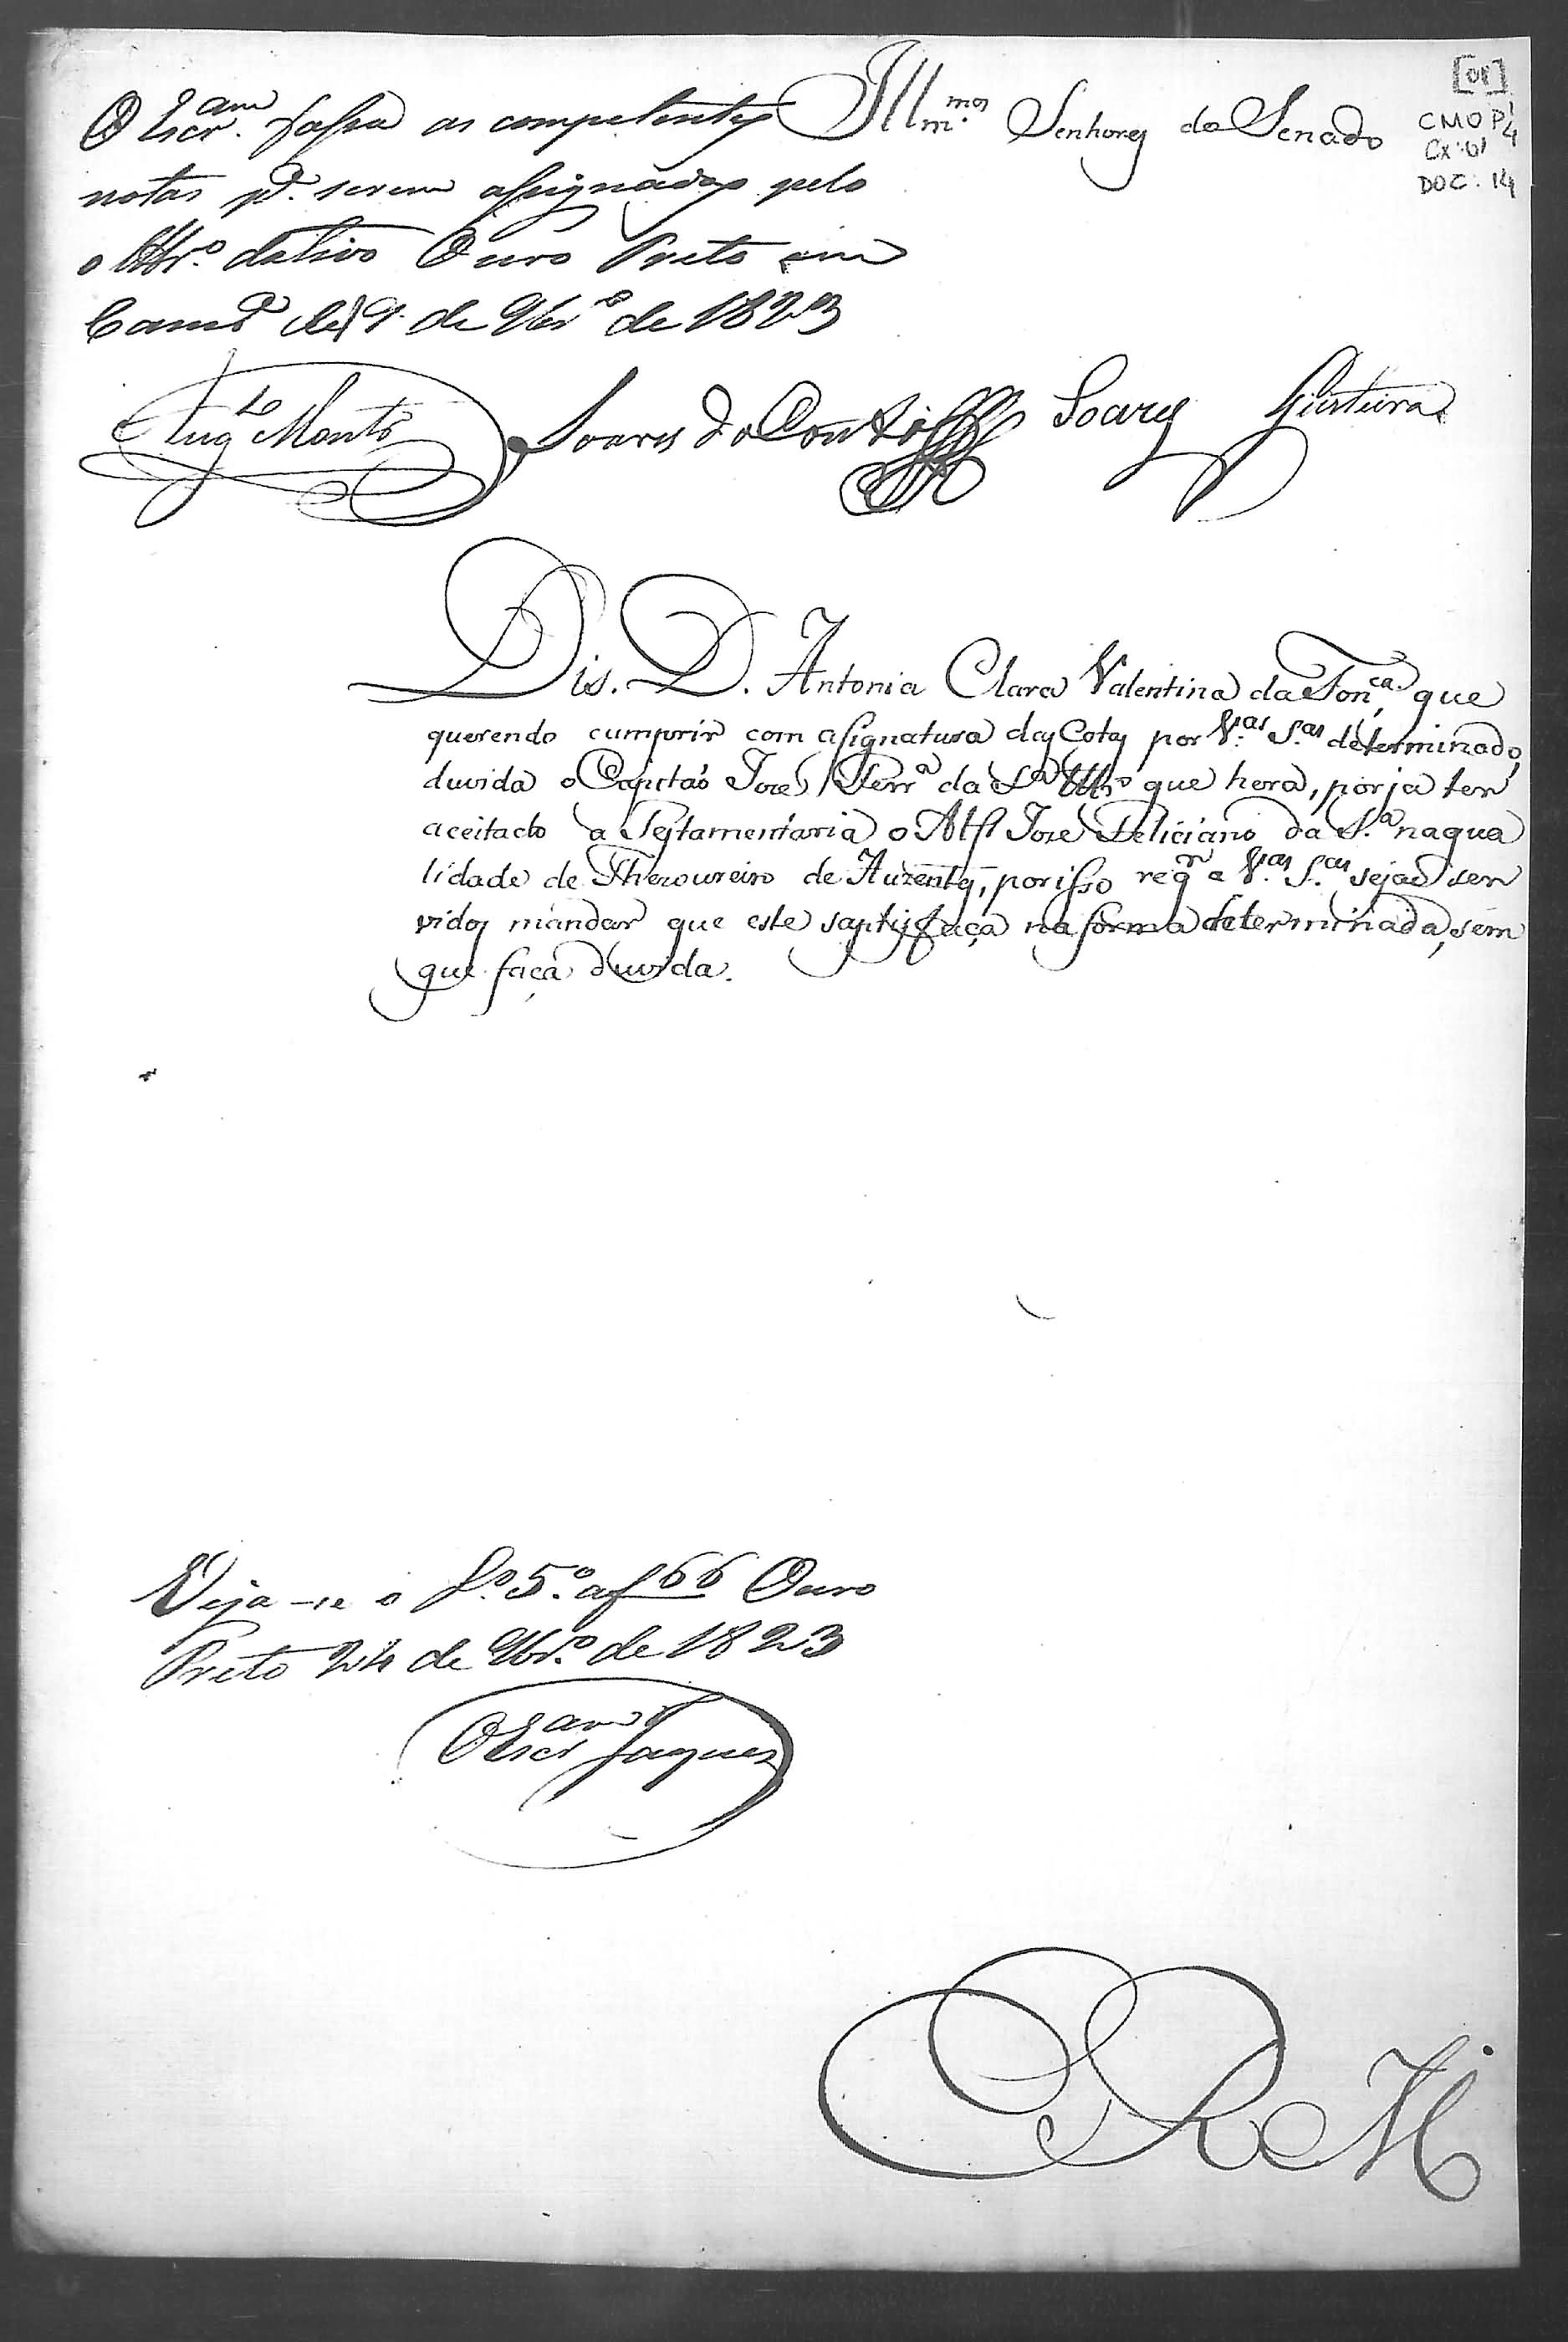 [01]
CMOP 1/4
Cx: 01
DOC: 14
Illm.mos Senhores do Senado
O Escr.am passa as competentes
notas p.a serem assignadas pelo
o dativo Ouro Preto em
Cam.a de 19 de 9br.o de 1823
Aug.to Mont.o Soares do Couto Soares
Dis. D. Antonia Clara Valentina da Fon.ca, que
querendo cumprir com asignatura das Cotas por V.as S.as determinado,
duvida o Capitaõ Joze Perr.a da S.a que hera, por ja ter
aceitado a Testamentaria o Alf.s Joze Feliciano da S.a na qua
lidade de Thezoureiro de Auzentes, por isso req.r a V.as S.as sejaõ ser
vidos mandar que este saptisfaça na forma determinada, sem
que faça duvida.
Veja-se o L.o 5.o a f 66 Ouro
Preto 24 de 9br.o de 1823
O Escr.am Jaques
E R M